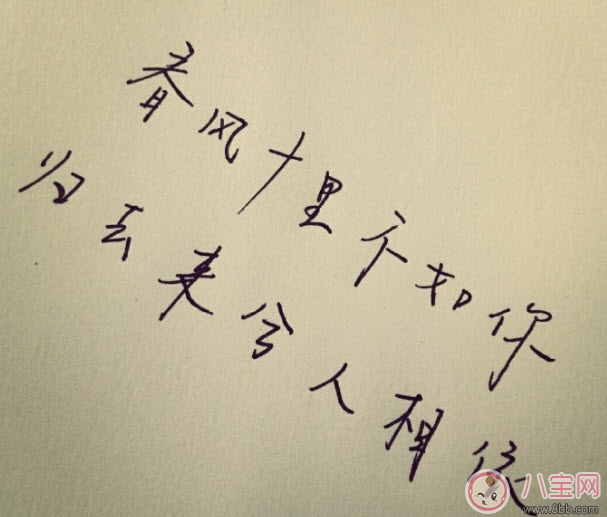 春风十里不如你
归去来兮人相依
八宝网
www.8bb.com